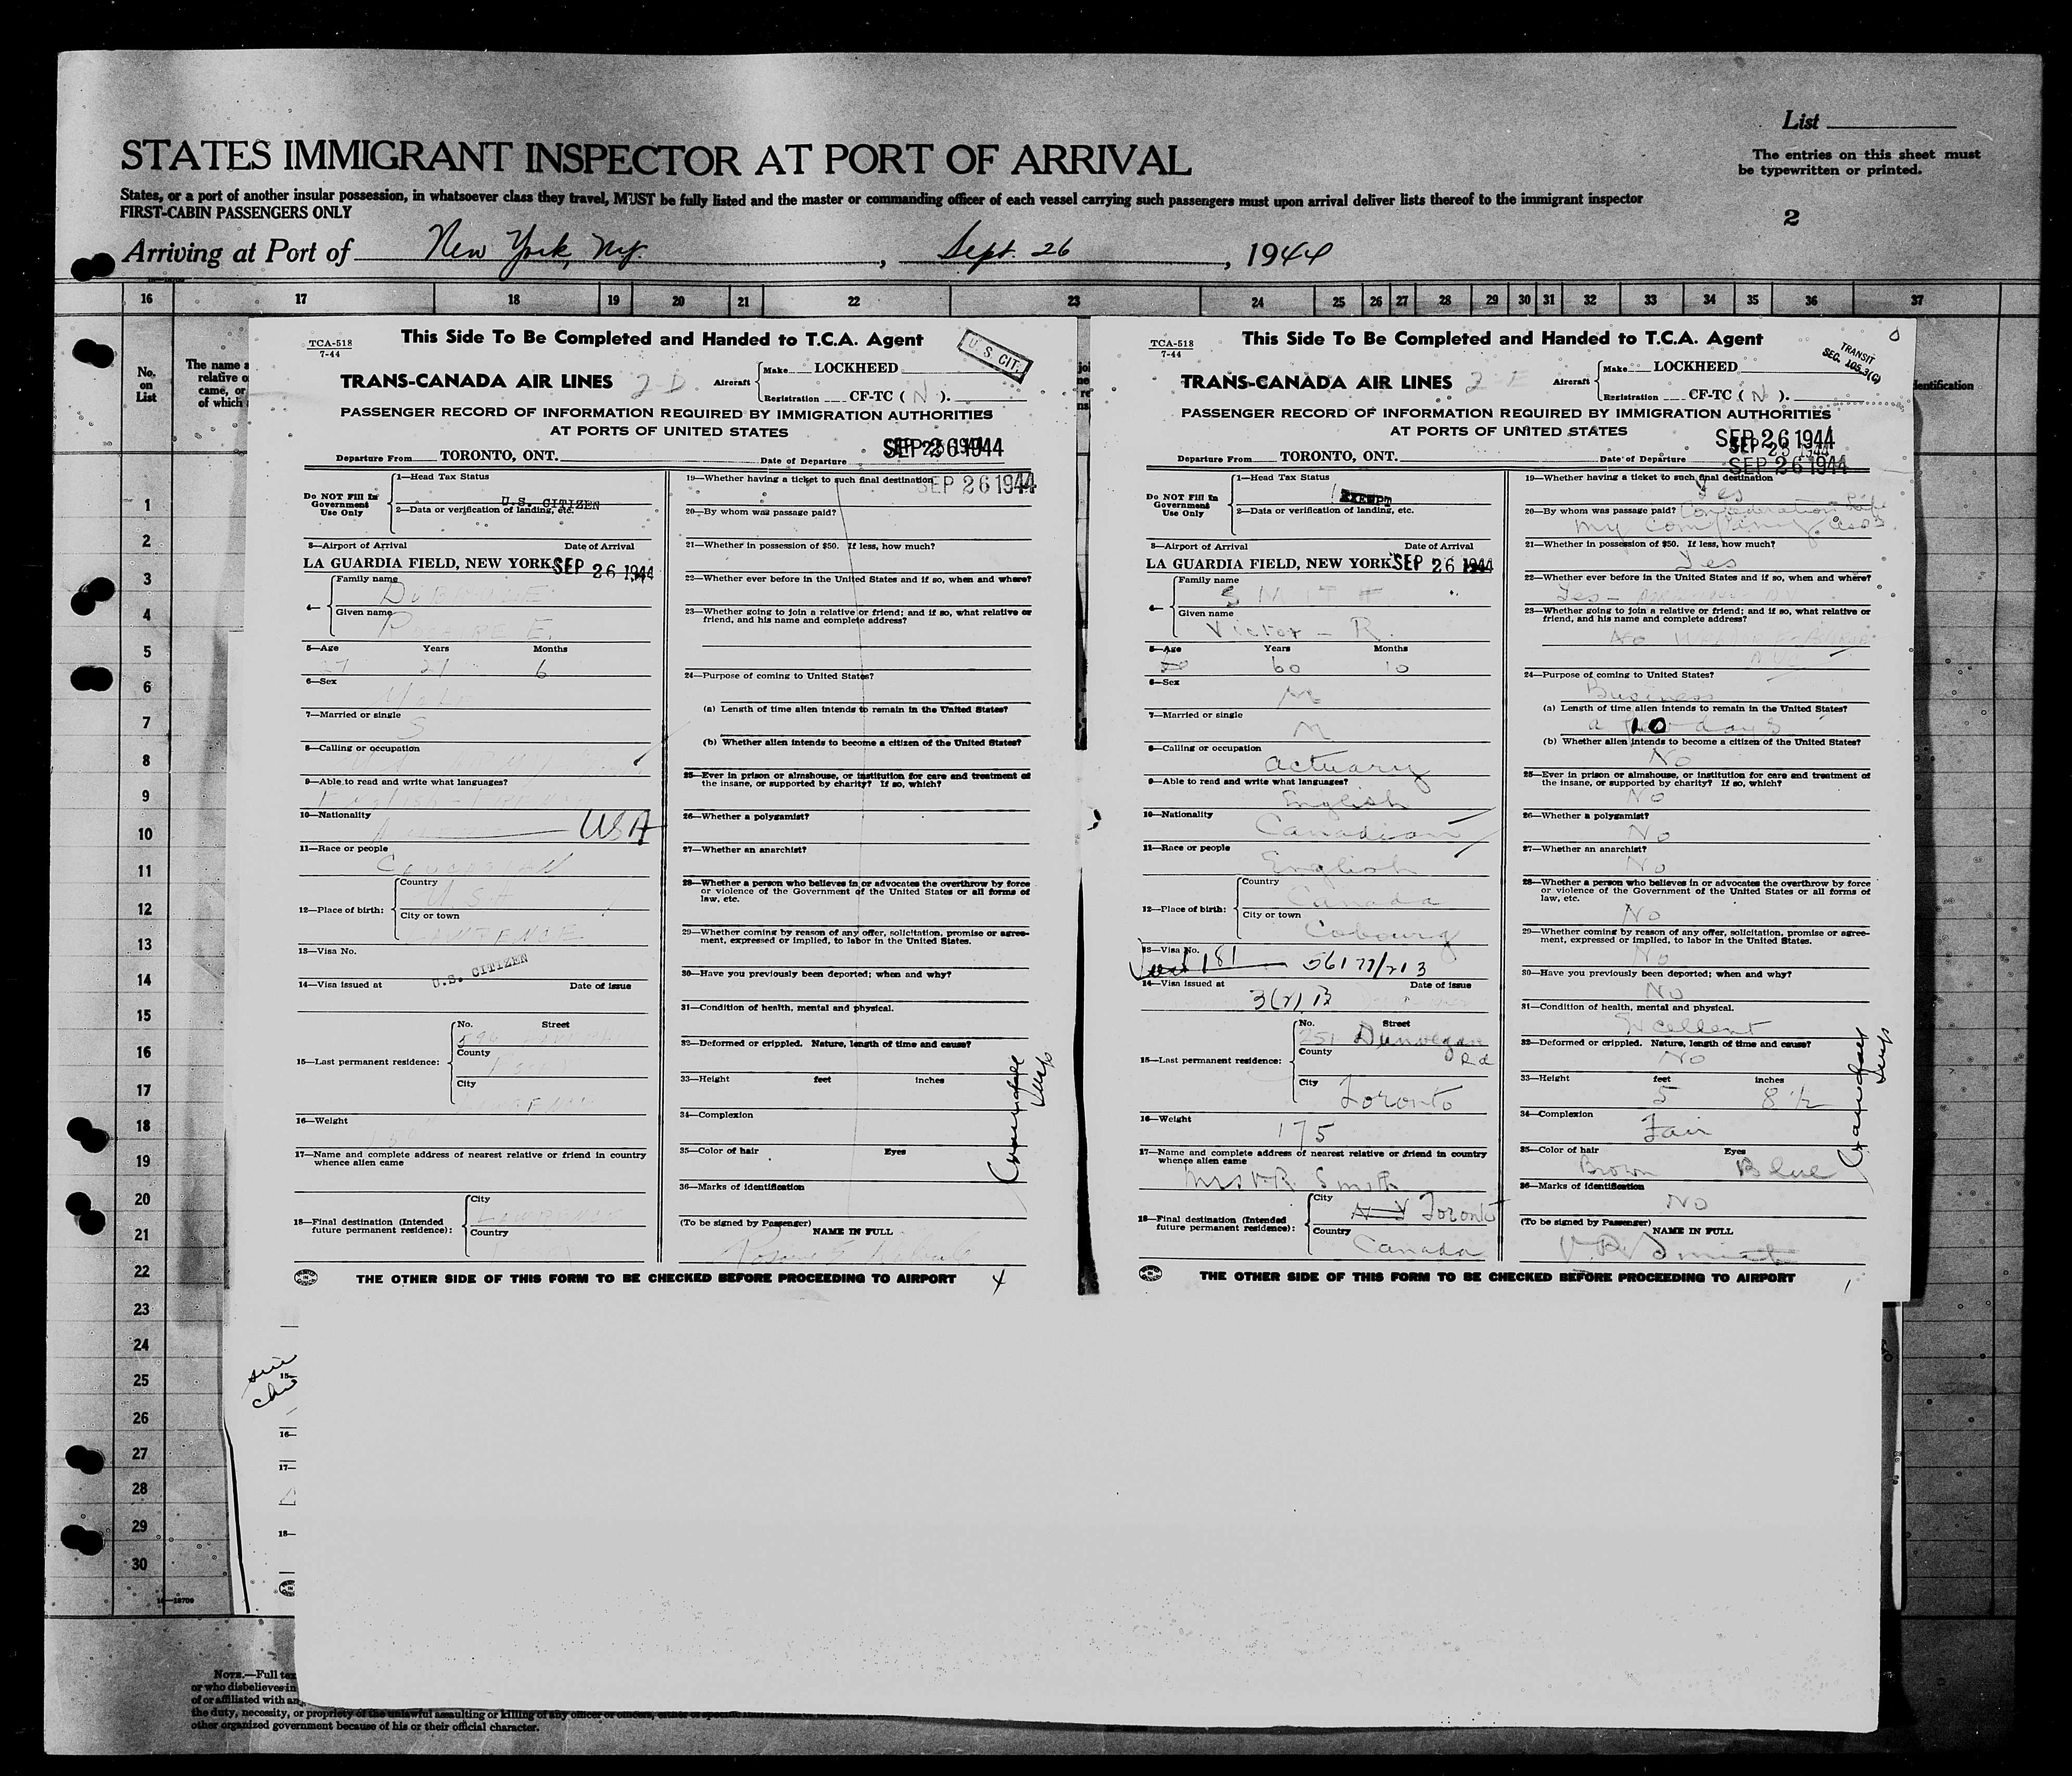 List
STATES IMMIGRANT INSPECTOR AT PORT OF ARRIVAL
The entries on this sheet must
be typewritten or printed.
States, or a port of another insular possession, in whatsoever class they travel, MUST be fully listed and the master or commanding officer of each vessel carrying such passengers must upon arrival deliver lists thereof to the immigrant inspector
FIRST-CABIN PASSENGERS ONLY
2
Arriving at Port of New York, N.Y. , Sept. 26 , 1944
16 17 18 19 20 21 22 23 24 25 26 27 28 29 30 31 32 33 34 35 36 37
No. on List
The name a
relative o
came, or
of which
1
2
3
4
5
6
7
8
9
10
11
12
13
14
15
16
17
18
19
20
21
22
23
24
25
26
27
28
29
30
TCA-518
7-44
This Side To Be Completed and Handed to T.C.A. Agent
U. S. CIT.
TRANS-CANADA AIR LINES 2 D
Aircraft Make LOCKHEED
Registration CF-TC ( N ).
PASSENGER RECORD OF INFORMATION REQUIRED BY IMMIGRATION AUTHORITIES
AT PORTS OF UNITED STATES
Departure From TORONTO, ONT. Date of Departure SEP 26 1944
Do NOT Fill In
Government
Use Only
1—Head Tax Status
U.S. CITIZEN
2—Data or verification of landing, etc.
3—Airport of Arrival Date of Arrival
LA GUARDIA FIELD, NEW YORK SEP 26 1944
4— Family name
Given name
5—Age Years Months
27 6
6—Sex
7—Married or single
S
8—Calling or occupation
9—Able to read and write what languages?
10—Nationality USA
11—Race or people
12—Place of birth: Country
USA
City or town
LAWRENCE
13—Visa No.
U.S. CITIZEN
14—Visa issued at Date of issue
15—Last permanent residence: No. Street
County
City
16—Weight
17—Name and complete address of nearest relative or friend in country
whence alien came
18—Final destination (Intended
future permanent residence): City
Country
SEP 26 1944
19—Whether having a ticket to such final destination
20—By whom was passage paid?
21—Whether in possession of $50. If less, how much?
22—Whether ever before in the United States and if so, when and where?
23—Whether going to join a relative or friend; and if so, what relative or
friend, and his name and complete address?
24—Purpose of coming to United States?
(a) Length of time alien intends to remain in the United States?
(b) Whether alien intends to become a citizen of the United States?
25—Ever in prison or almshouse, or institution for care and treatment of
the insane, or supported by charity? If so, which?
26—Whether a polygamist?
27—Whether an anarchist?
28—Whether a person who believes in or advocates the overthrow by force
or violence of the Government of the United States or all forms of
law, etc.
29—Whether coming by reason of any offer, solicitation, promise or agree-
ment, expressed or implied, to labor in the United States.
30—Have you previously been deported; when and why?
31—Condition of health, mental and physical.
32—Deformed or crippled. Nature, length of time and cause?
33—Height feet inches
34—Complexion
35—Color of hair Eyes
36—Marks of identification
(To be signed by Passenger) NAME IN FULL
THE OTHER SIDE OF THIS FORM TO BE CHECKED BEFORE PROCEEDING TO AIRPORT
4
TCA-518
7-44
This Side To Be Completed and Handed to T.C.A. Agent
TRANSIT
SEC. 105.3(C)
TRANS-CANADA AIR LINES 2
Aircraft Make LOCKHEED
Registration CF-TC ( N ).
PASSENGER RECORD OF INFORMATION REQUIRED BY IMMIGRATION AUTHORITIES
AT PORTS OF UNITED STATES
SEP 26 1944
SEP 25 1944
Departure From TORONTO, ONT. Date of Departure SEP 26 1944
Do NOT Fill In
Government
Use Only
1—Head Tax Status
EXEMPT
2—Data or verification of landing, etc.
3—Airport of Arrival Date of Arrival
LA GUARDIA FIELD, NEW YORK SEP 26 1944
4— Family name
SMITH
Given name
Victor - R.
5—Age Years Months
60 10
6—Sex
M
7—Married or single
M
8—Calling or occupation
actuary
9—Able to read and write what languages?
English
10—Nationality
Canadian
11—Race or people
English
12—Place of birth: Country
Canada
City or town
Cobourg
13—Visa No.
181 56177/213
14—Visa issued at Date of issue
3(2) B
15—Last permanent residence: No. Street
251 Dunvegan Rd
County
City
Toronto
16—Weight
175
17—Name and complete address of nearest relative or friend in country
whence alien came
Mrs V.R. Smith
18—Final destination (Intended
future permanent residence): City
N Y Toronto
Country
Canada
19—Whether having a ticket to such final destination
Yes
20—By whom was passage paid? Confederation Life
my company
21—Whether in possession of $50. If less, how much?
Yes
22—Whether ever before in the United States and if so, when and where?
Yes -
23—Whether going to join a relative or friend; and if so, what relative or
friend, and his name and complete address?
24—Purpose of coming to United States?
Business
(a) Length of time alien intends to remain in the United States?
10 days
(b) Whether alien intends to become a citizen of the United States?
No
25—Ever in prison or almshouse, or institution for care and treatment of
the insane, or supported by charity? If so, which?
No
26—Whether a polygamist?
No
27—Whether an anarchist?
No
28—Whether a person who believes in or advocates the overthrow by force
or violence of the Government of the United States or all forms of
law, etc.
No
29—Whether coming by reason of any offer, solicitation, promise or agree-
ment, expressed or implied, to labor in the United States.
No
30—Have you previously been deported; when and why?
No
31—Condition of health, mental and physical.
Excellent
32—Deformed or crippled. Nature, length of time and cause?
No
33—Height feet inches
5 8 1/2
34—Complexion
Fair
35—Color of hair Eyes
Brown Blue
36—Marks of identification
No
(To be signed by Passenger) NAME IN FULL
V. R. Smith
THE OTHER SIDE OF THIS FORM TO BE CHECKED BEFORE PROCEEDING TO AIRPORT
1
entification
15—
16—
17—
18—
16—18709
NOTE.—Full tex
or who disbelieves in
of or affiliated with an
the duty, necessity, or propriety of the unlawful assaulting or killing of any officer or officers,
other organized government because of his or their official character.